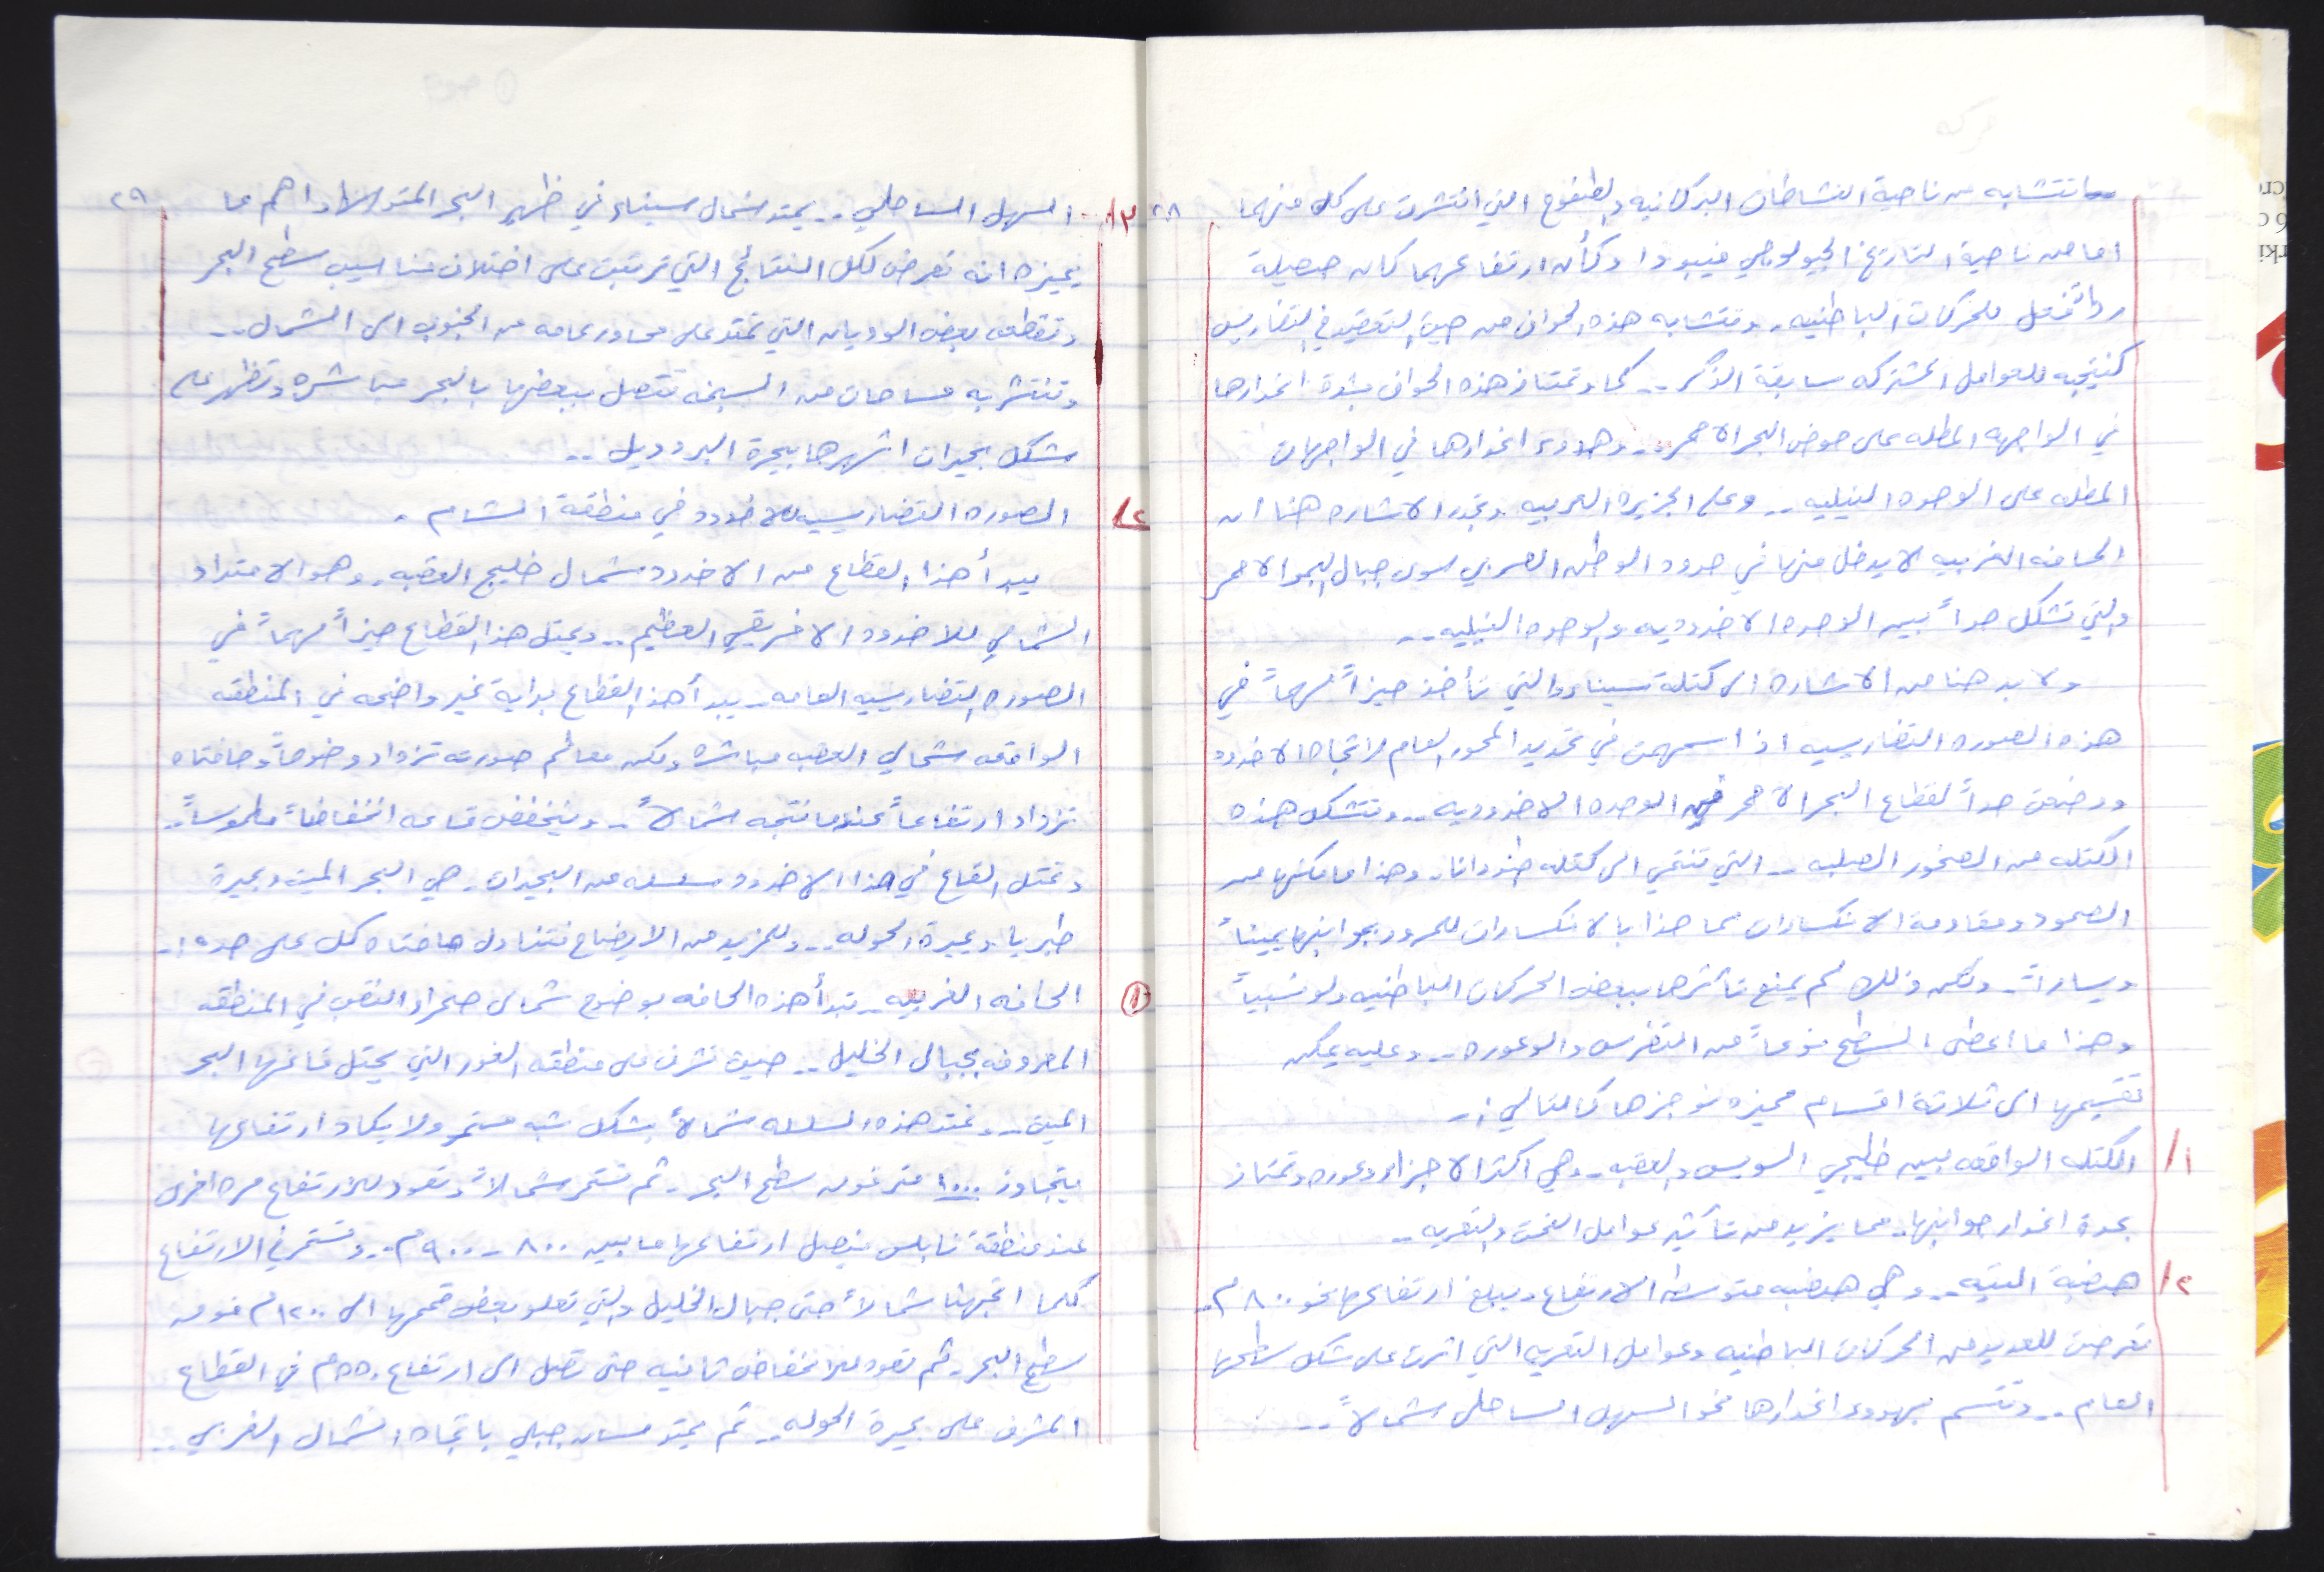 تتشابه من ناحية النشاطات البركانيه والطفوح التي انتشرت على كل منهما
اما من ناحية التاريخ الجيولوجي فيبدوا وكأن ارتفاعهما كان حصيلة
رد فعل للحركات الباطنيه.. وتتشابه هذه الحواف من حيث التعقيد في التضاريس
كنتيجه للعوامل المشتركه سابقة الذكر.. كما وتمتاز هذه الحواف بشدة انحدارها
في الواجهه المطله على حوض البحر الاحمر.. وهدوء انحدارها في الواجهات
المطله على الوحده النيليه.. وعلى الجزيره العربيه وتجدر الاشاره هنا ان
الحافه الغربيه لا يدخل منها في حدود الوطن العربي سوى جبال البحر الاحمر
والتي تشكل حداً بين الوحده الاخدوديه والوحده النيليه..
ولا بد هنا من الاشاره الى كتلة سيناء والتي تأخذ حيزاً مهماً في
هذه الصوره التضاريسيه اذ اسهمت في تحديد المحور العام لاتجاه الاخدود
ووضعت حداً لقطاع البحر الاحمر في الوحده الاخدوديه.. وتتشكل هذه
الكتله من الصخور الصلبه.. التي تنتمي الى كتله جندوانا.. وهذا ما مكنها من
الصمود ومقاومة الانكسارات مما حذا بالانكسارات للمرور بجوانبها يميناً
ويساراً.. ولكن ذلك لم يمنع تأثرها ببعض الحركات الباطنيه ولو نسبياً
وهذا ما اعطى السطح نوعاً من التضرس والوعوره.. وعليه يمكن
تقسيمها الى ثلاثة اقسام مميزه نوجزها كالتالي :-
١/ الكتله الواقعه بين خليجي السويس والعقبه.. وهي اكثر الاجزاء وعوره وتمتاز
بحدة انحدار جوانبها.. مما يزيد من تأثير عوامل النحت والتعريه..
٢/ هضبة التيه.. وهي هضبه متوسطه الارتفاع ويبلغ ارتفاعها نحو ٨٠٠م..
تعرضت للعديد من الحركات الباطنيه وعوامل التعريه التي اثرت على شكل سطحها
العام.. وتتسم بهدوء انحدارها نحو السهل الساحلي شمالاً..
٢٨
٣/ السهل الساحلي.. يمتد شمال سيناء في ظهير البحر المتوسط واهم ما
٢٩
يميزه انه تعرض لكل النتائج التي ترتبت على اختلاف مناسيب سطح البحر
وتقطعه بعض الوديان التي تمتد على محاور عامه من الجنوب الى الشمال..
وتنتشر به مساحات من السبخه تتصل ببعضها بالبحر مباشره وتظهر على
شكل بحيرات اشهرها بحيرة البردويل..
٢/ الصوره التضاريسيه للاخدود في منطقة الشام.
يبدأ هذا القطاع من الاخدود شمال خليج العقبه.. وهو الامتداد
الشمالي للاخدود الافريقي العظيم.. ويمثل هذا القطاع حيزاً مهماً في
الصوره التضاريسيه العامه.. يبدأ هذا القطاع بداية غير واضحه في المنطقه
الواقعه شمالي العقبه مباشره ولكن معالم صورته تزداد وضوحاً وحافتاه
تزداد ارتفاعاً عندما نتجه شمالاً.. وينخفض قاعه انخفاضاً ملموساً..
وتمثل القاع في هذا الاخدود سلسله من البحيرات.. هي البحر الميت وبحيرة
طبريا وبحيرة الحوله.. وللمزيد من الايضاح نتناول حافتاه كل على حده :-
① الحافه الغربيه.. تبدأ هذه الحافه بوضوح شمالي صحراء النقب في المنطقه
المعروفه بجبال الخليل.. حيث تشرف على منطقه الغور التي يحتل قاعها البحر
الميت.. وتمتد هذه السلسله شمالاً بشكل شبه مستمر ولا يكاد ارتفاعها
يتجاوز ١٠٠٠ متر فوق سطح البحر.. ثم تستمر شمالاً وتعود للارتفاع مره اخرى
عند منطقة نابلس فيصل ارتفاعها ما بين ٨٠٠ - ٩٠٠م.. وتستمر في الارتفاع
كلما اتجهنا شمالاً حتى جبال الجليل والتي تعلو بعض قممها الى ١٢٠٠م فوق
سطح البحر.. ثم تعود للانخفاض ثانيه حتى تصل الى ارتفاع ٥٥٠م في القطاع
المشرف على بحيرة الحوله.. ثم يمتد لسان جبلي باتجاه الشمال الغربي..